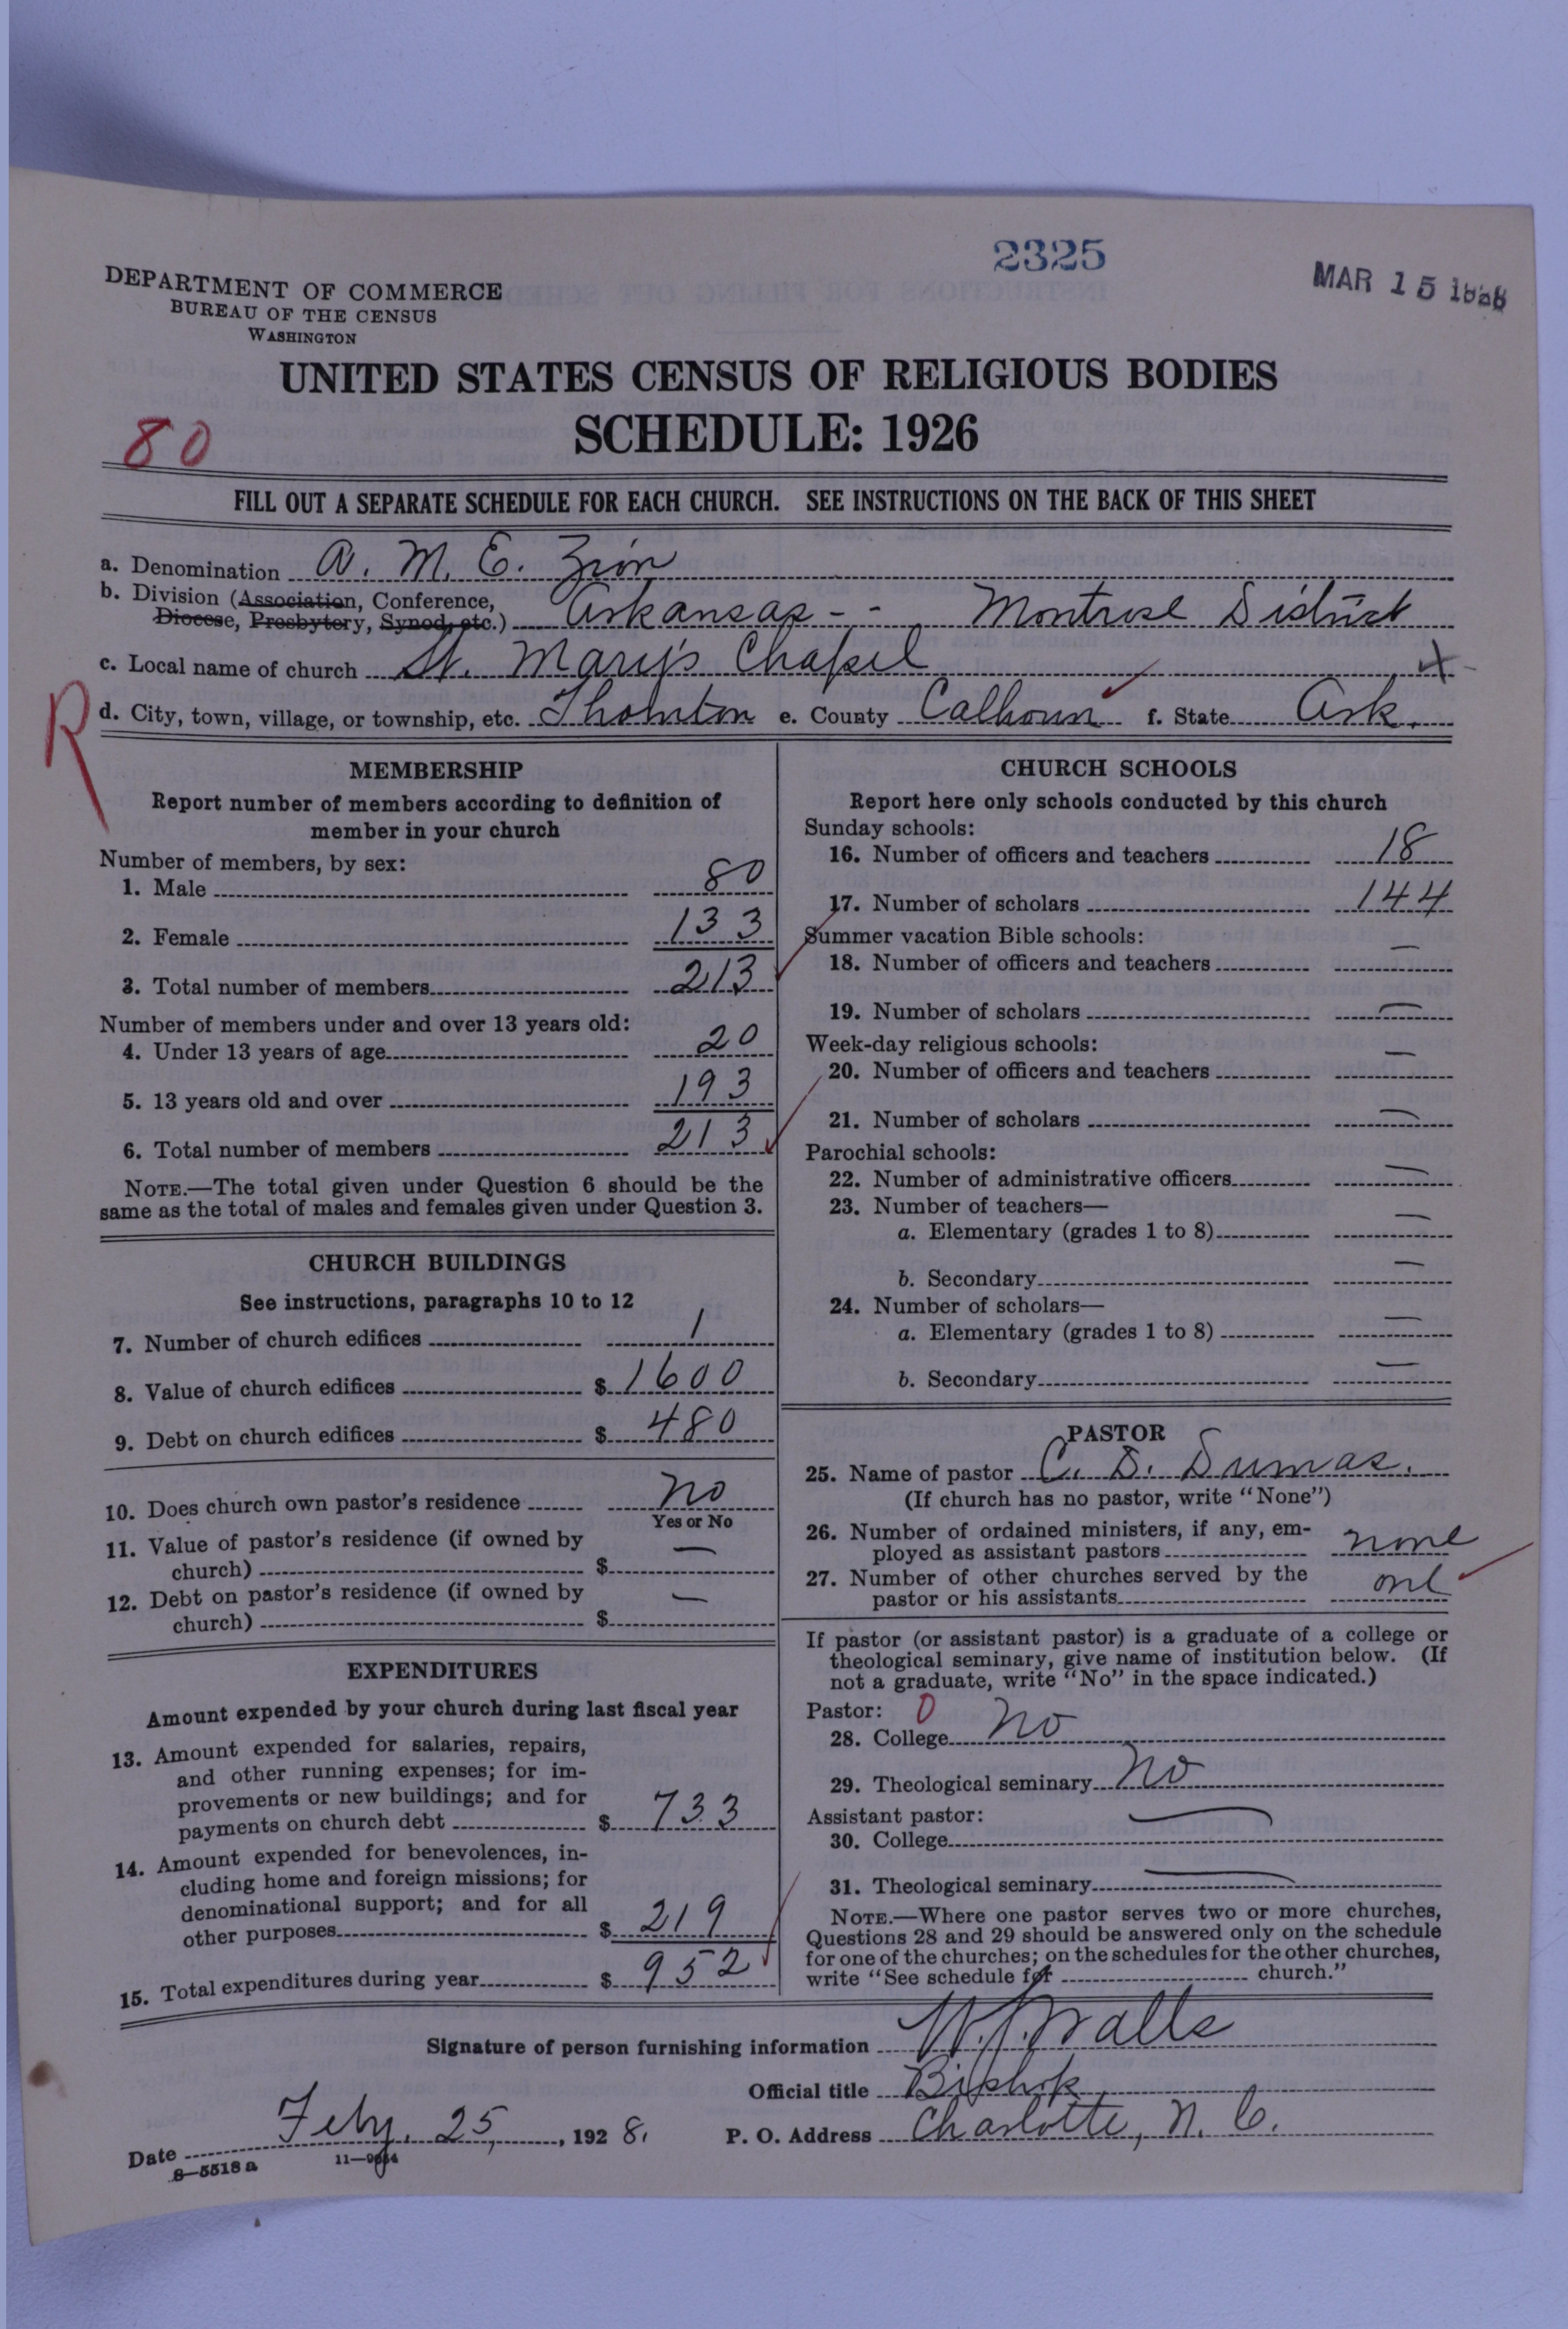 2325
MAR 15 1928
DEPARTMENT OF COMMERCE
BUREAU OF THE CENSUS
WASHINGTON
UNITED STATES CENSUS OF RELIGIOUS BODIES
SCHEDULE: 1926
80
FILL OUT A SEPARATE SCHEDULE FOR EACH CHURCH. SEE INSTRUCTIONS ON THE BACK OF THIS SHEET
a. Denomination A. M. E. Zion
b. Division (Association, Conference,
Diocese, Presbytery, Synod, etc.) Arkansas -- Montrose District
c. Local name of church St. Mary's Chapel
R
d. City, town, village, or township, etc. Thornton e. County Calhoun f. State Ark.
MEMBERSHIP
Report number of members according to definition of
member in your church
Number of members, by sex:
1. Male 80
2. Female 133
3. Total number of members 213
Number of members under and over 13 years old:
4. Under 13 years of age 20
5. 13 years old and over 193
6. Total number of members 213
NOTE.—The total given under Question 6 should be the
same as the total of males and females given under Question 3.
CHURCH BUILDINGS
See instructions, paragraphs 10 to 12
7. Number of church edifices 1
8. Value of church edifices $ 1600
9. Debt on church edifices $ 480
10. Does church own pastor's residence No
Yes or No
11. Value of pastor's residence (if owned by
church) $ —
12. Debt on pastor's residence (if owned by
church) $ —
EXPENDITURES
Amount expended by your church during last fiscal year
13. Amount expended for salaries, repairs,
and other running expenses; for im-
provements or new buildings; and for
payments on church debt $ 733
14. Amount expended for benevolences, in-
cluding home and foreign missions; for
denominational support; and for all
other purposes $ 219
15. Total expenditures during year $ 952
CHURCH SCHOOLS
Report here only schools conducted by this church
Sunday schools:
16. Number of officers and teachers 18
17. Number of scholars 144
Summer vacation Bible schools:
18. Number of officers and teachers —
19. Number of scholars —
Week-day religious schools:
20. Number of officers and teachers —
21. Number of scholars —
Parochial schools:
22. Number of administrative officers —
23. Number of teachers—
a. Elementary (grades 1 to 8) —
b. Secondary —
24. Number of scholars—
a. Elementary (grades 1 to 8) —
b. Secondary —
PASTOR
25. Name of pastor C. D. Dumas.
(If church has no pastor, write "None")
26. Number of ordained ministers, if any, em-
ployed as assistant pastors none
27. Number of other churches served by the
pastor or his assistants one
If pastor (or assistant pastor) is a graduate of a college or
theological seminary, give name of institution below. (If
not a graduate, write "No" in the space indicated.)
Pastor: 0
28. College No
29. Theological seminary No
Assistant pastor:
30. College —
31. Theological seminary —
NOTE.—Where one pastor serves two or more churches,
Questions 28 and 29 should be answered only on the schedule
for one of the churches; on the schedules for the other churches,
write "See schedule for church."
Signature of person furnishing information W. J. Walls
Official title Bishop
Date Feby. 25, 1928. P. O. Address Charlotte, N. C.
8—5518 a 11—9654